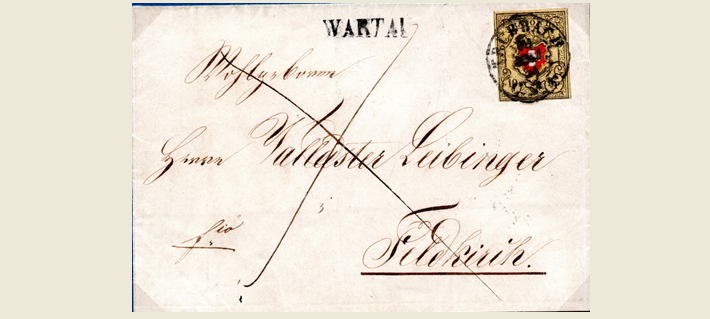 WARTAU
Wohlgeboren
Herrn Valldester Leibinger
fco
Feldkirch.